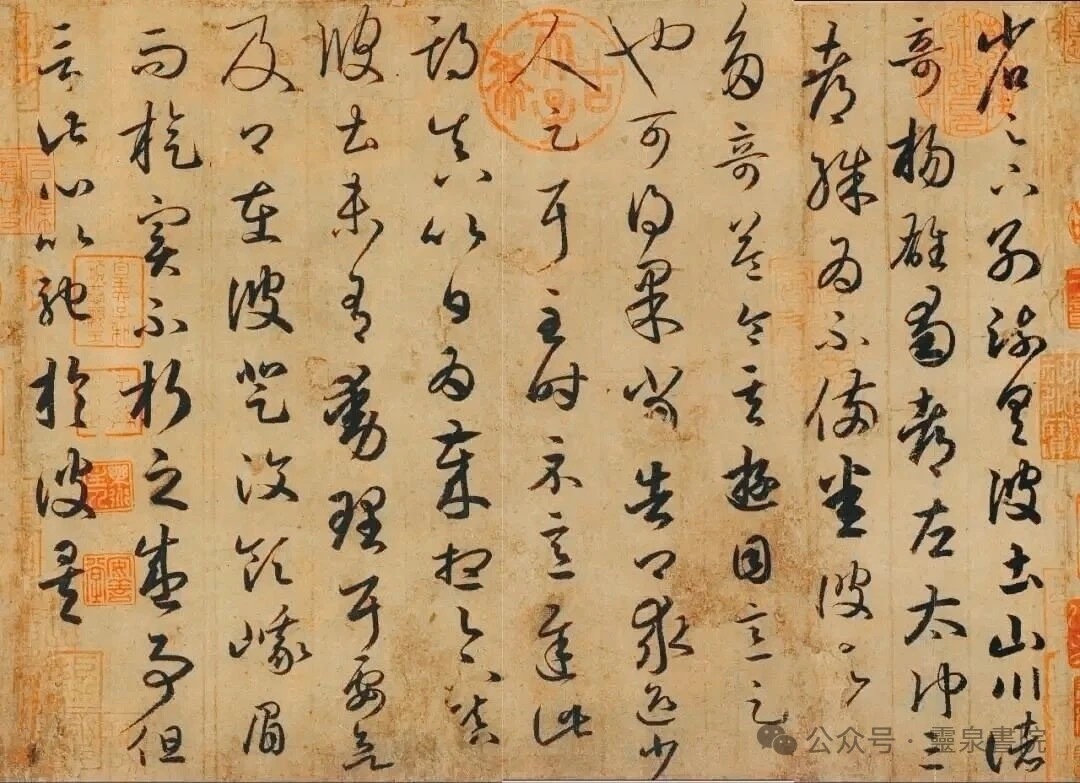 省足下別疏具彼土山川諸
奇楊雄蜀都左太沖三
都殊為不備悉彼故
多奇益令其遊目意足
也可得果當告卿求迎少
人足耳至時示意遲此
期真以日為歲想足下鎮
彼土未有動理耳要欲
及卿在彼登汶領峨眉
而旋實不朽之盛事但
言此心以馳於彼矣
公众号 · 靈泉書院